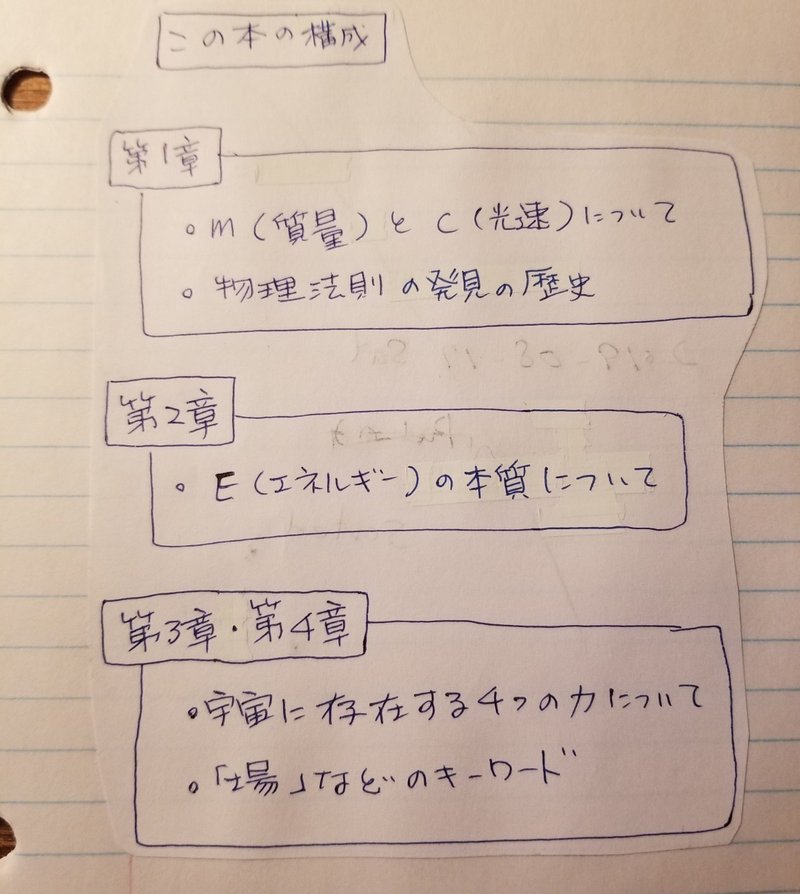 この本の構成
第1章
。m(質量)とC(光速)について
。物理法則の発見の歴史
第2章
。E(エネルギー)の本質について
第3章・第4章
。宇宙に存在する4つの力について
。「場」などのキーワード